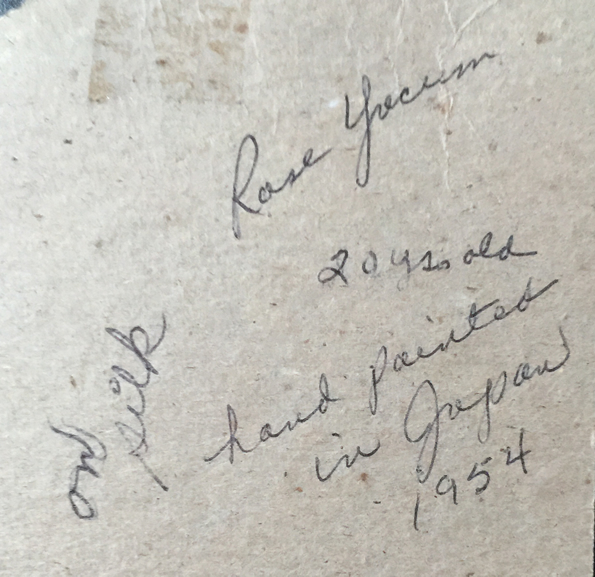 Rose Yocum
20 yrs old
hand painted
in Japan
1954
on silk